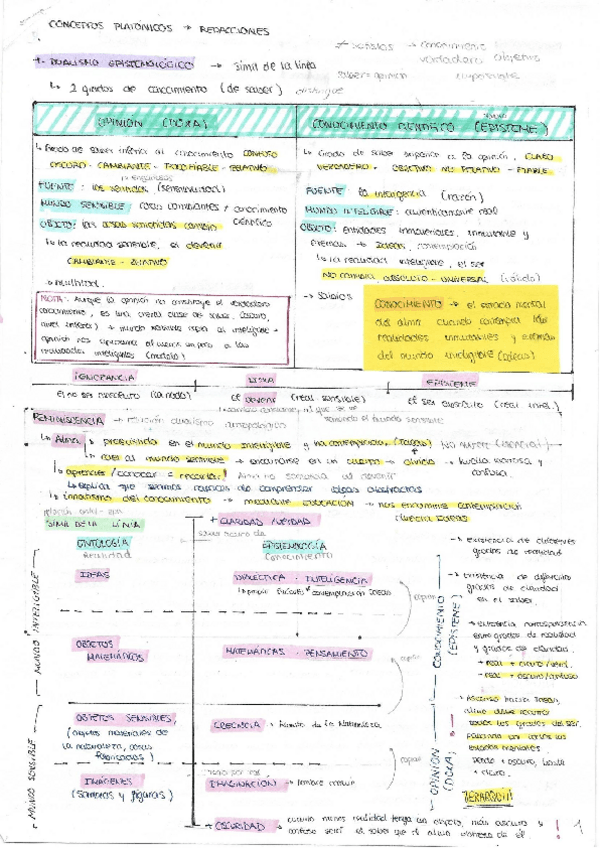 CONCEPTOS PLATÓNICOS → REDACCIONES
* sofistas → conocimiento
verdadero objetivo
+. DUALISMO EPISTEMOLÓGICO → símil de la línea
saber/opinión
↳ 2 grados de conocimiento (de saber)
OPINIÓN (DOXA)
CONOCIMIENTO CIENTÍFICO (EPISTEME)
↳ Grado de saber inferior al conocimiento CONFUSO
OSCURO - CAMBIANTE - - RELATIVO
FUENTE: los sentidos (sensibilidad)
MUNDO SENSIBLE: cosas cambiantes / conocimiento científico
OBJETO: las cosas sensibles
↳ la realidad sensible, el devenir
CAMBIANTE - RELATIVO
→ multitud
NOTA: Aunque la opinión no constituye el verdadero
conocimiento, es una cierta clase de saber
mundo sensible copia al inteligible
opinión nos
realidades inteligibles (modelo)
↳ Grado de saber superior a la opinión, CLARO
VERDADERO - OBJETIVO NO RELATIVO - FIABLE
FUENTE: la inteligencia (razón)
MUNDO INTELIGIBLE: auténticamente real
OBJETO: entidades inmateriales, inmutables y
eternas → Ideas, contemplación
↳ la realidad inteligible, el ser
NO CAMBIA, ABSOLUTO - UNIVERSAL (sólido)
→ Sabios
CONOCIMIENTO → el estado mental
del alma cuando contempla las
realidades inmutables y eternas
del mundo inteligible (ideas)
IGNORANCIA
DOXA
EPISTEME
El no ser absoluto (la nada)
El devenir (real sensible)
El ser absoluto (real intel.)
REMINISCENCIA → relación dualismo antropológico
↳ Alma ↳ preexistido en el mundo inteligible y ha contemplado (Ideas) NO MUERE (esencia)
↳ cae al mundo sensible → encarnarse en un cuerpo → olvido → huella borrosa y
confusa
↳ aprender / conocer = recordar!
↳ explica que seamos capaces de comprender ideas abstractas
↳ innatismo del conocimiento → mediante EDUCACIÓN → nos encamina contemplación
directa Ideas
SÍMIL DE LA LÍNEA
+ CLARIDAD
ONTOLOGÍA
Realidad
EPISTEMOLOGÍA
Conocimiento
MUNDO INTELIGIBLE
IDEAS
DIALÉCTICA : INTELIGENCIA
contemplación Ideas
copian
OBJETOS
MATEMÁTICOS
MATEMÁTICAS - PENSAMIENTO
copian
CONOCIMIENTO
(EPISTEME)
MUNDO SENSIBLE
OBJETOS SENSIBLES
(objetos materiales de
la naturaleza, cosas
fabricadas)
CREENCIA → de la Naturaleza
copian
IMÁGENES
(sombras y figuras)
IMAGINACIÓN → hombre común
OPINIÓN
(DOXA)
+ OSCURIDAD → cuanto menos realidad tenga un objeto, más oscuro y
confuso será el saber que el alma obtenga de él.
→ existencia de diferentes
grados de realidad
→ existencia de diferentes
grados de claridad
en el saber
→ existencia correspondencia
entre grados de realidad
y grados de claridad.
+ real + claro
- real + oscuro/confuso
→ Ascenso hacia Ideas,
alma debe recorrer
todos los grados del ser,
pasando por todos los
estados mentales
Desde + oscuro, hasta
+ claro.
JERARQUÍA
1